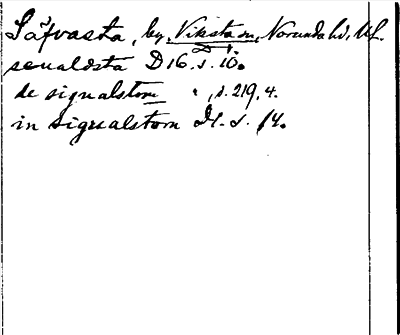 Säfvasta, by, Viksta sn, Norunda hd, Upl.
seualdsta D 16. s. 10.
de signalstom " , s. 219, 4.
in sigualstom s. 14.